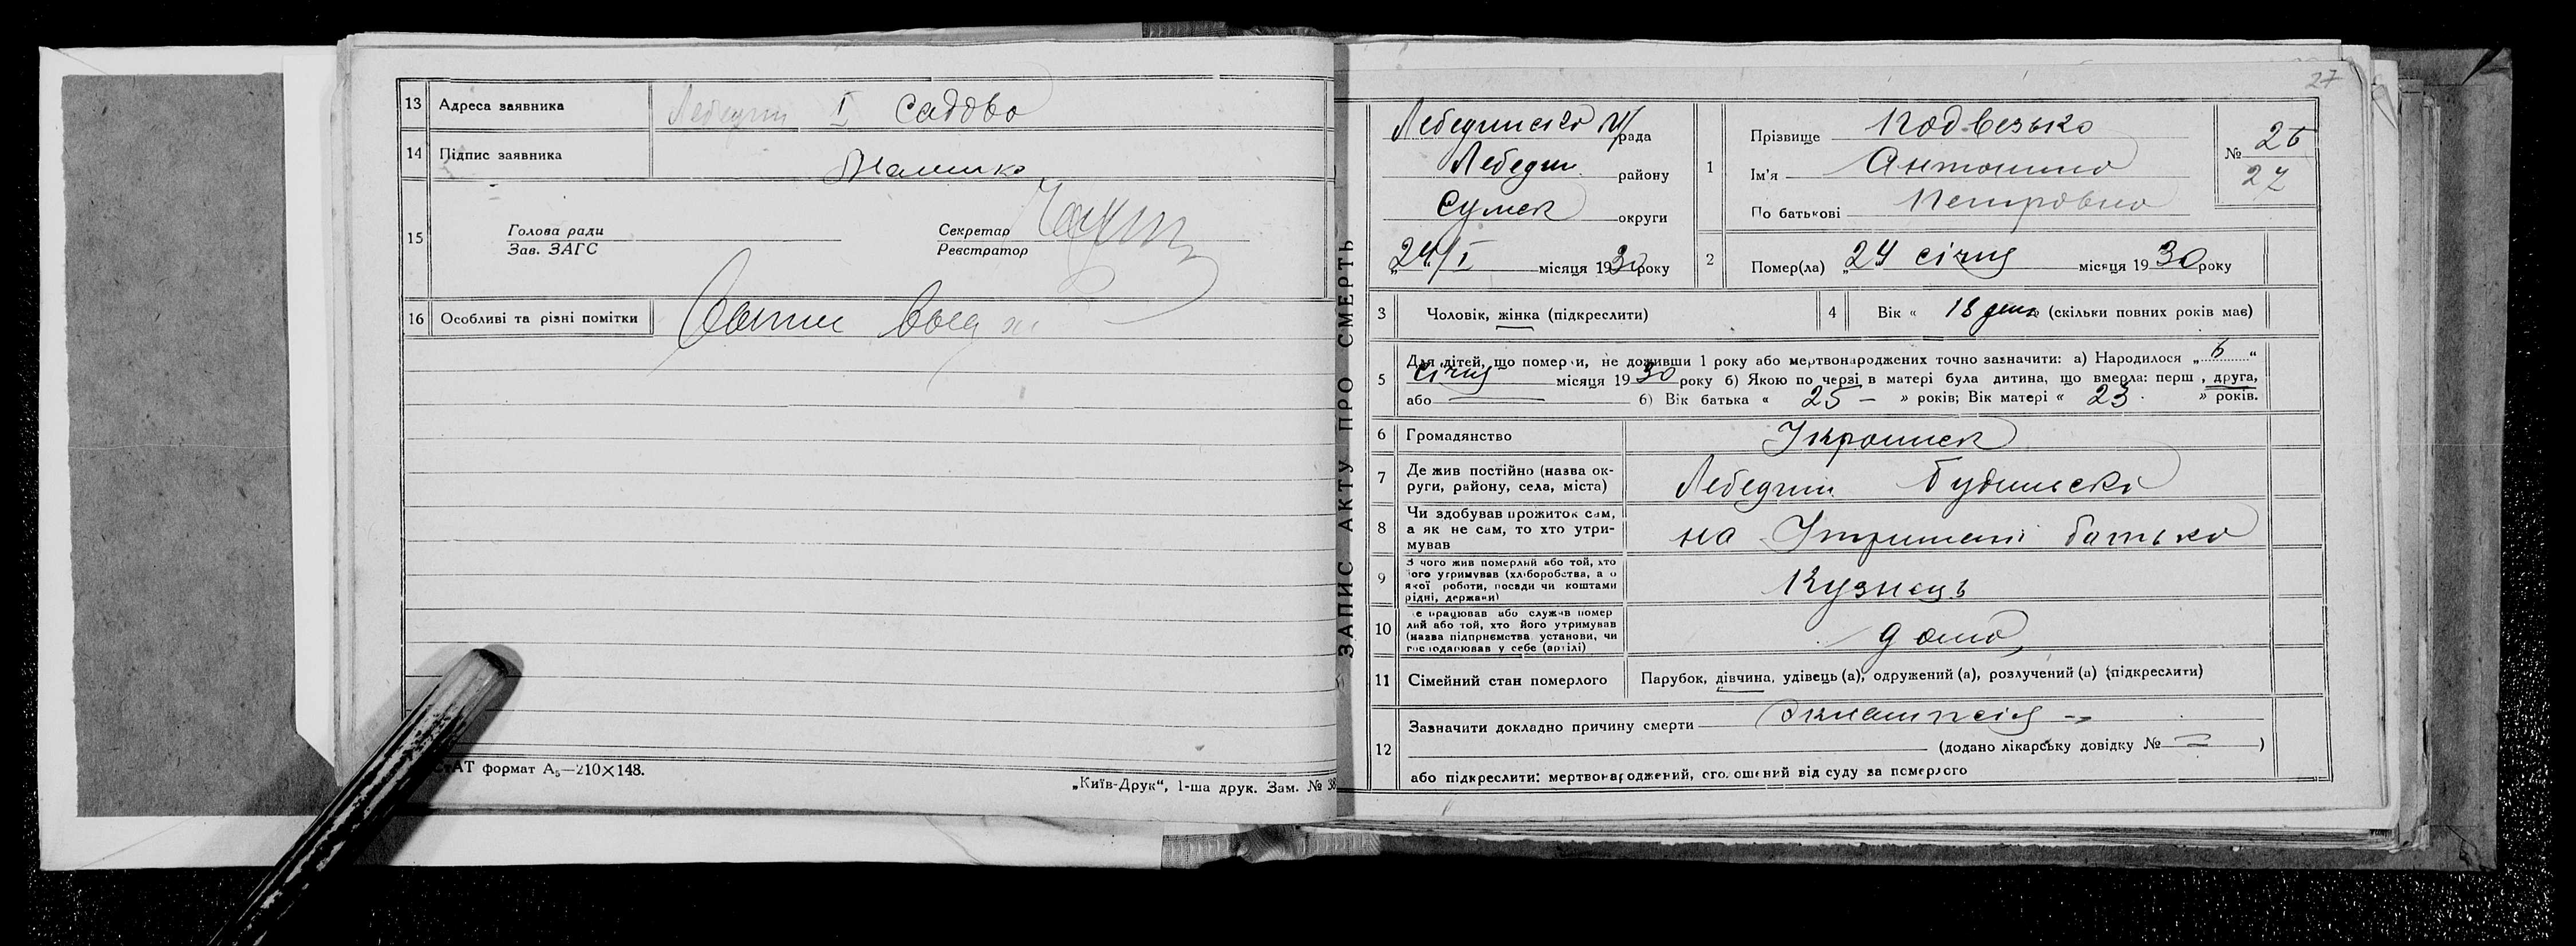 13 Адреса заявника Лебедин I Садова
14 Підпис заявника
15 Голова ради Секретар
Зав. ЗАГС Реєстратор
16 Особливі та різні помітки
СтАТ формат А₅—210×148.
„Київ-Друк“, 1-ша друк. Зам. № 38
ЗАПИС АКТУ ПРО СМЕРТЬ
27
Лебединська рада
Лебедин району
Сумск округи
„24/I місяця 1930 року
1 Прізвище Подвезько
Ім'я Антонина
По батькові Петровна
№ 26
27
2 Помер(ла) „24 січня місяця 1930 року
3 Чоловік, жінка (підкреслити)
4 Вік « 18 день (скільки повних років має)
5 Для дітей, що померли, не доживши 1 року або мертвонароджених точно зазначити: а) Народилося „ 6 “
січня місяця 1930 року б) Якою по черзі в матері була дитина, що вмерла: перш , друга,
або б) Вік батька « 25 — » років; Вік матері « 23 » років.
6 Громадянство Українск
7 Де жив постійно (назва ок-
руги, району, села, міста) Лебедин Будильска
8 Чи здобував прожиток сам,
а як не сам, то хто утри-
мував на Утримані батька
9 З чого жив померлий або той, хто
його утримував (хліборобства, а о
якої роботи, посади чи коштами
рідні, держави) Кузнець
10 е працював або служив помер
лий або той, хто його утримував
(назва підприємства установи, чи
господарював у себе (артілі) дома
11 Сімейний стан померлого Парубок, дівчина, удівець (а), одружений (а), розлучений (а) (підкреслити)
12 Зазначити докладно причину смерти Эклампсія
(додано лікарську довідку № — )
або підкреслити: мертвонароджений, оголошений від суду за померлого